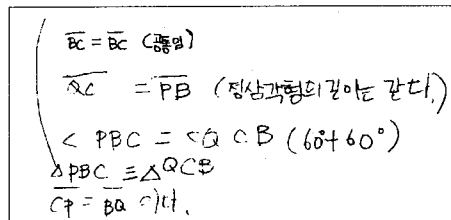 BC = BC (공통변)
QC = PB (정삼각형의 길이는 같다.)
< PBC = <QCB (60°+60°)
△PBC ≡ △QCB
CP = BQ 이다.